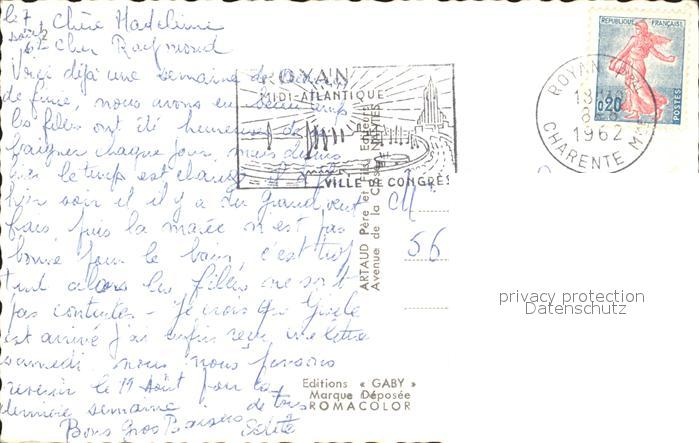 le 7
août 62
Chère Madeleine
Cher Raymond
Voici déjà une semaine de
de finie, nous avons eu beau temps
les filles ont été heureuses de se
baigner chaque jour, mais depuis
hier le temps est changé
hier soir il y a du grand vent
frais puis la marée n'est pas
bonne pour le bain, c'est trop
tard alors les filles ne sont
pas contentes. Je crois que Gisèle
est arrivé j'ai enfin reçu une lettre
samedi. nous nous pensons
revenir le 19 Août pour la
dernière semaine
Bons Gros Baisers de tous
ROYAN
MIDI-ATLANTIQUE
VILLE DE CONGRÈS
ARTAUD Père et Fils Editeurs
Avenue de la Close NANTES
REPUBLIQUE FRANÇAISE
0,20
POSTES
ROYAN
1962
CHARENTE MME
56
privacy protection
Datenschutz
Editions « GABY »
Marque Déposée
ROMACOLOR